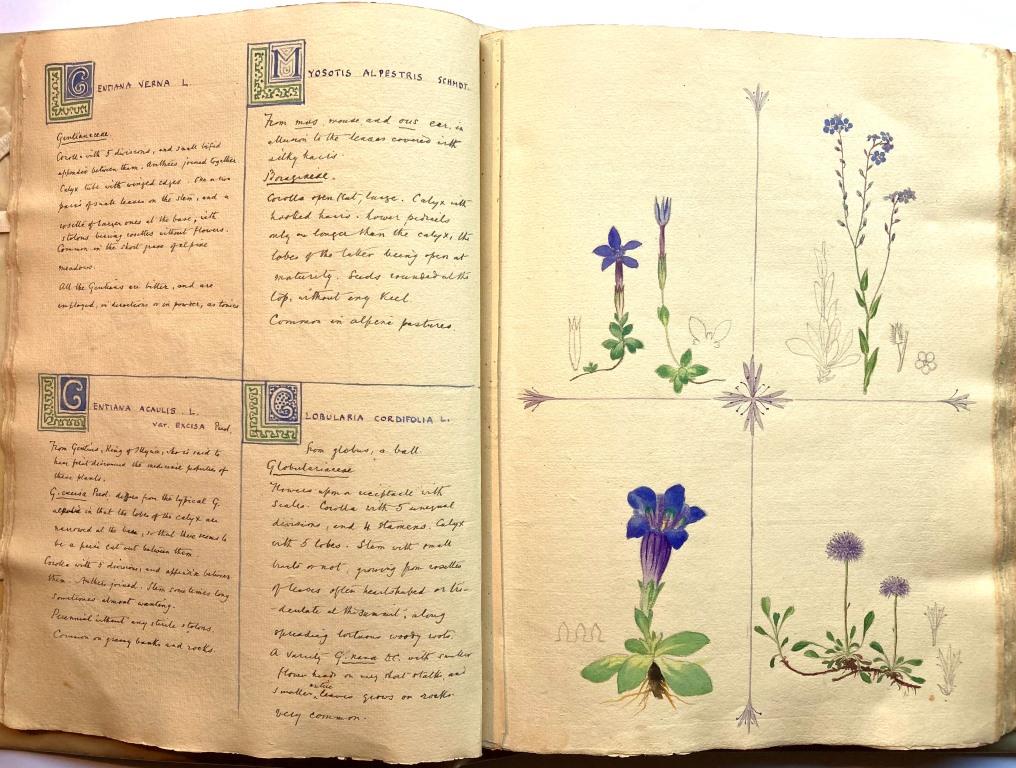 GENTIANA VERNA L.
Gentianaceae.
Corolla with 5 divisions, and small bifid
appendix between them. Anthers joined together
Calyx tube with winged edges. One or two
pairs of leaves on the stem, and a
rosette of larger ones at the base, with
stolons bearing rosettes without flowers.
Common in the short grass of alpine
meadows.
All the Gentians are bitter, and are
employed, in decoctions or in powder, as tonics
MYOSOTIS ALPESTRIS SCHMDT.
From mus, mouse, and ous ear, in
allusion to the leaves covered with
silky hairs.
Boragineae.
Corolla open, flat, large. Calyx with
hooked hairs. Lower pedicels
only as longer than the calyx, the
lobes of the latter being open at
maturity. Seeds rounded at the
top, without any Keel.
Common in alpine pastures.
GENTIANA ACAULIS. L.
VAR. EXCISA Presl.
From Gentius, King of Illyria, who is said to
have first discovered the medicinal properties of
these plants.
G. excisa Presl. differs from the typical G.
in that the lobes of the calyx are
narrowed at the base, so that there seems to
be a piece cut out between them.
Corolla with 5 divisions, and appendix between
them. Anthers joined. Stem sometimes long
sometimes almost wanting.
Perennial without any sterile stolons.
Common on grassy banks and rocks.
GLOBULARIA CORDIFOLIA L.
from globus, a ball.
Globulariaceae
Flowers upon a receptacle with
Scales. Corolla with 5 unequal
divisions, and 4 stamens. Calyx
with 5 lobes. Stem with small
bracts or not, growing from rosettes
of leaves often heartshaped or tri-
-dentate at the summit, along
spreading tortuous woody roots.
A variety G. nana DC. with smaller
flower heads on very short stalks, and
smaller entire leaves grows on rocks.
very common.